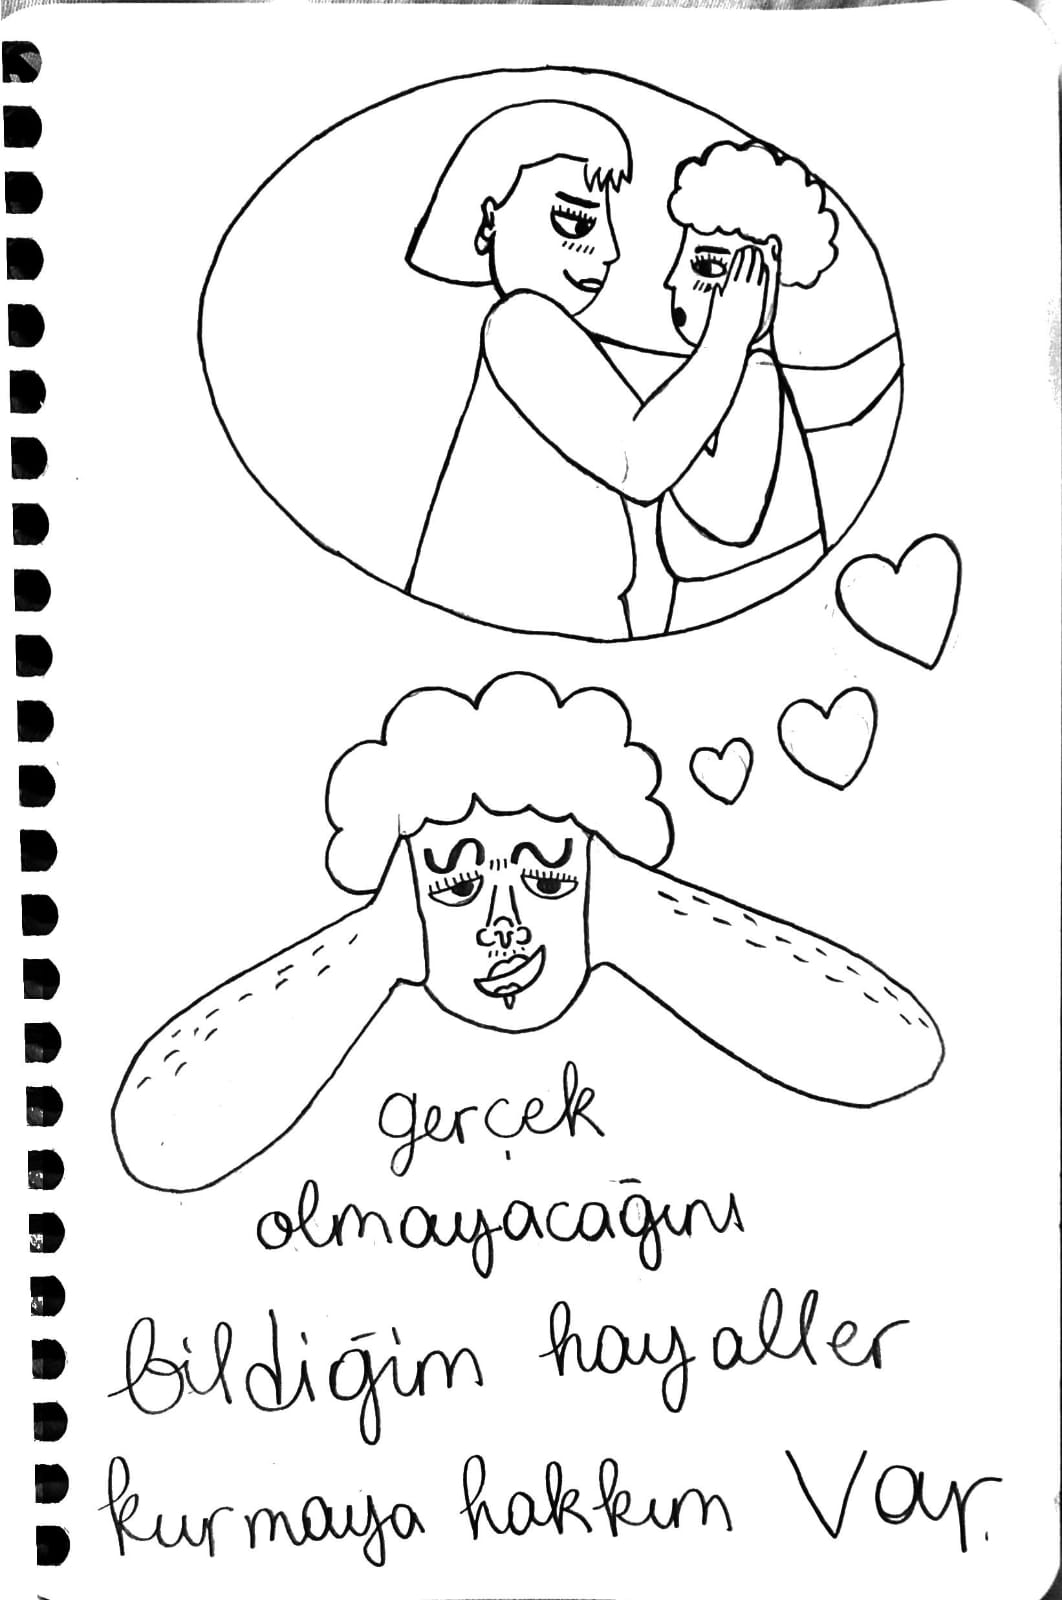 gerçek
olmayacağını
bildiğim hayaller
kurmaya hakkım var.